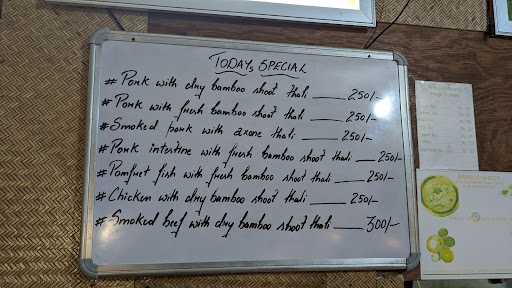 TODAY'S SPECIAL
# Pork with dry bamboo shoot thali ____ 250/-
# Pork with fresh bamboo shoot thali ____ 250/-
# Smoked pork with axone thali ____ 250/-
# Pork intestine with fresh bamboo shoot thali ___ 250/-
# Pomfret fish with fresh bamboo shoot thali ____ 250/-
# Chicken with dry bamboo shoot thali ____ 250/-
# Smoked beef with dry bamboo shoot thali ____ 300/-